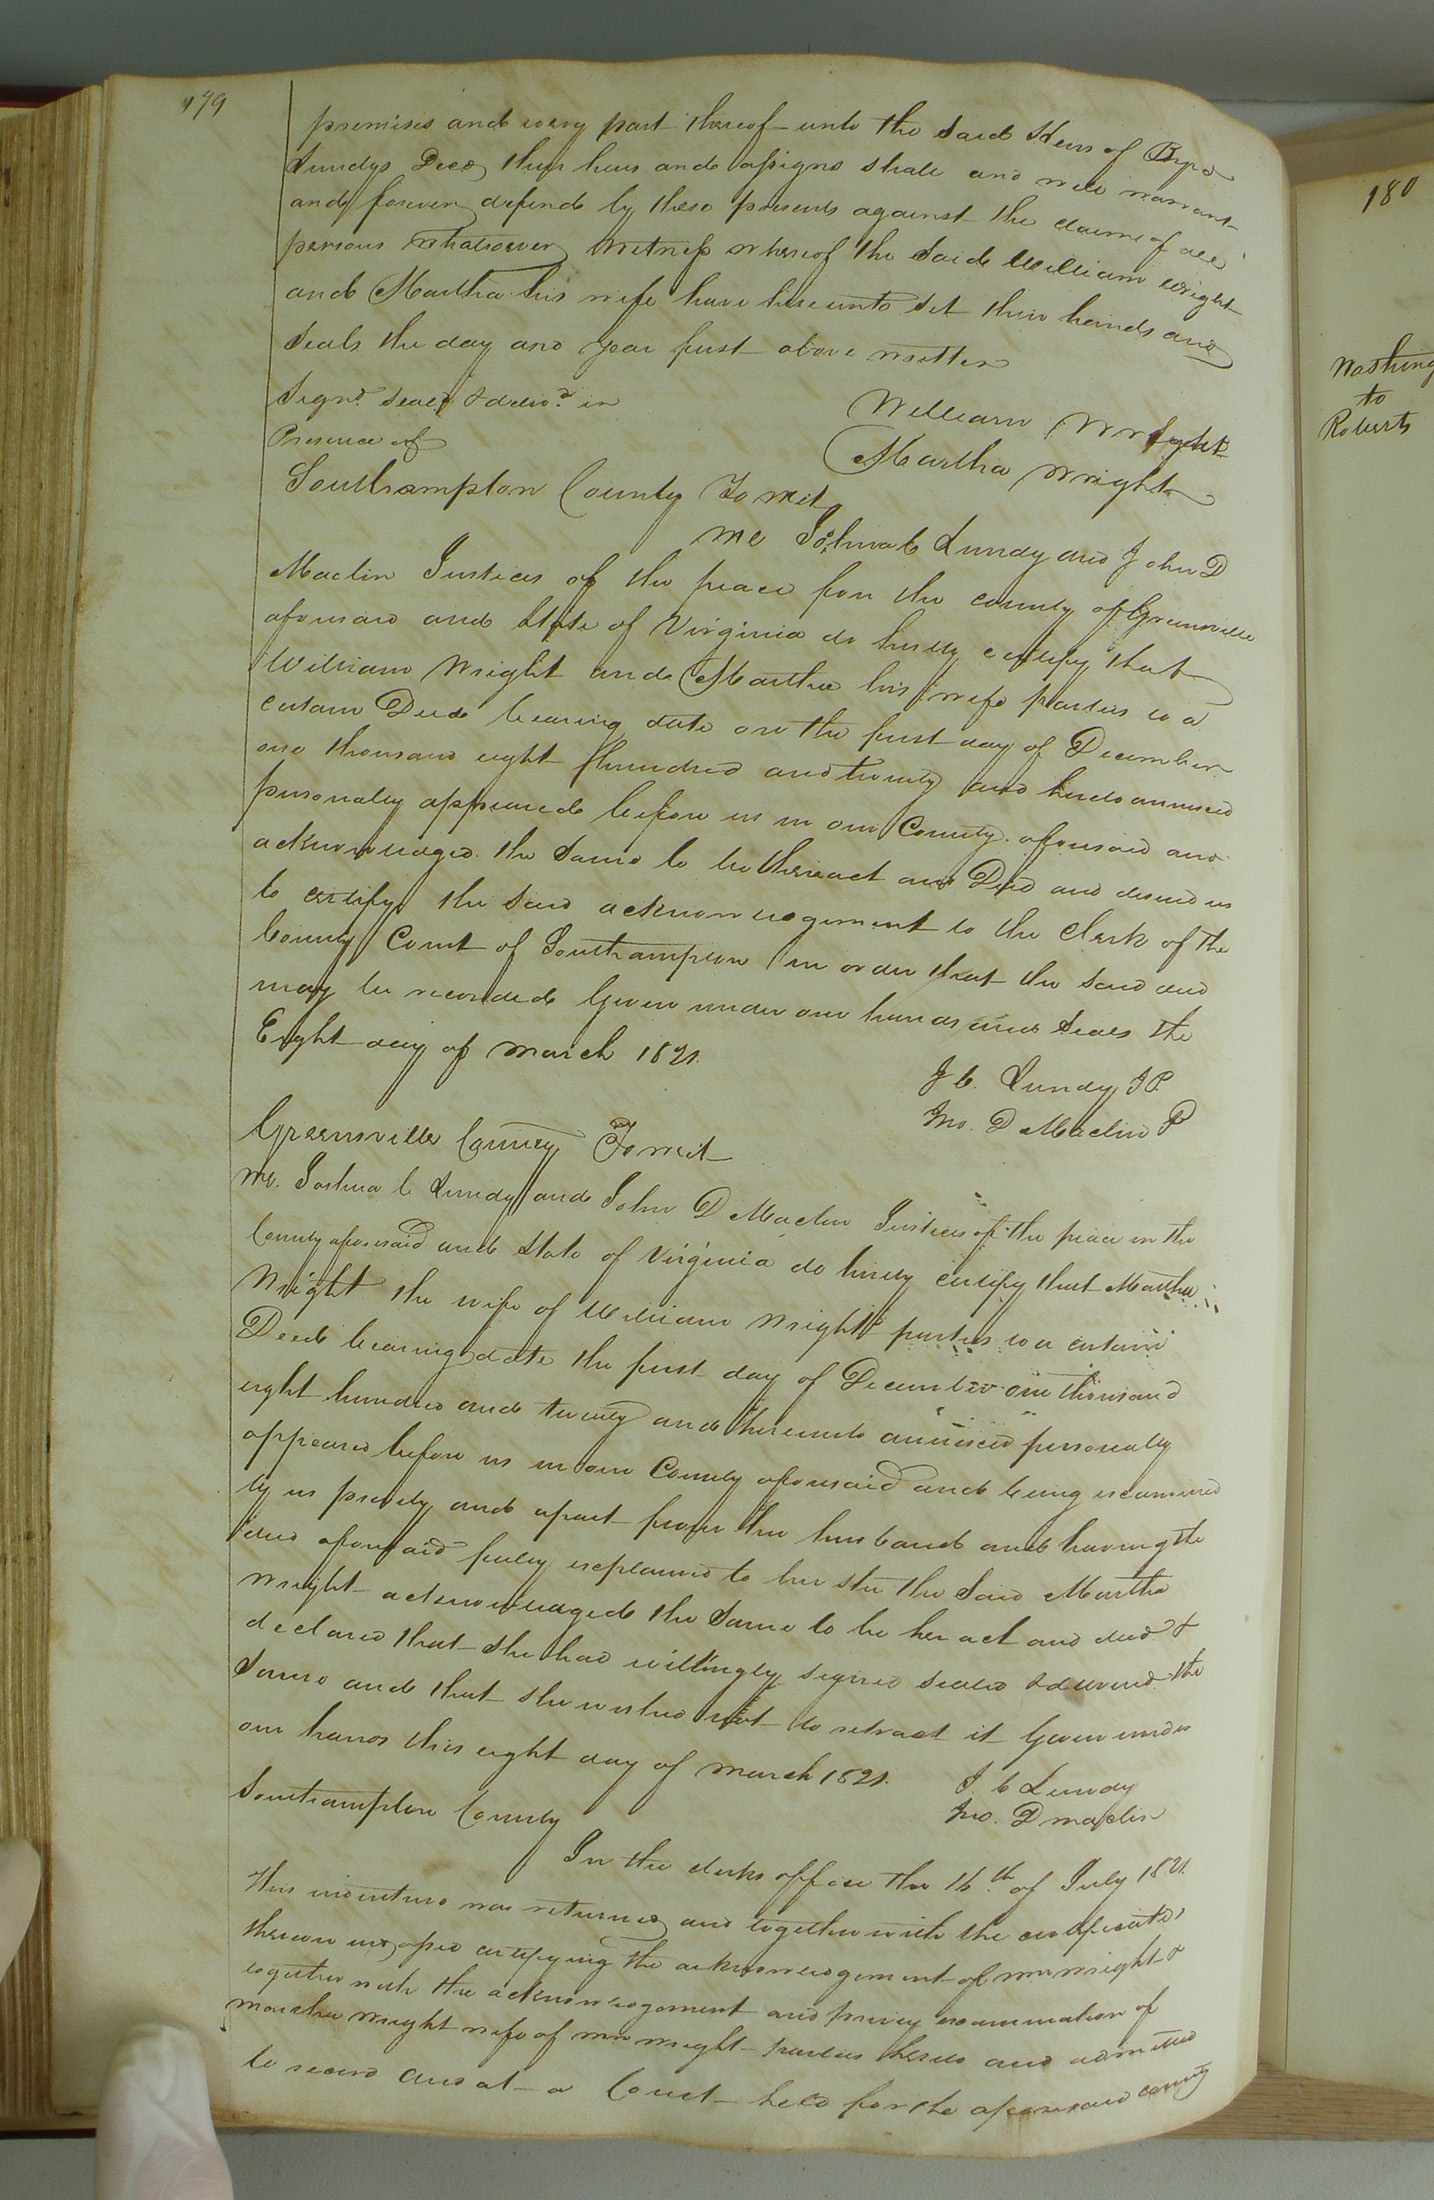 179
premises and every part thereof unto the said Heirs of Byrd
Lundys Decd their heirs and assigns shall and will warrant
and forever defend by these presents against the claims of all
persons whatsoever Witness whereof the said William Wright
and Martha his wife have hereunto set their hands and
seals the day and year first above written
Signd. Seald & delivd. in
Presence of
William Wright
Martha Wright
Southampton County To wit
We Joshua C Lundy and John D
Maclin Justices of the peace for the county of Greensville
aforesaid and State of Virginia do hereby certify that
William Wright and Martha his wife parties to a
certain Deed bearing date on the first day of December
one thousand eight hundred and twenty and hereto annexed
personally appeared before us in our County aforesaid and
acknowledged the same to be their act and Deed and desired us
to certify the said acknowledgement to the Clerk of the
County Court of Southampton in order that the said deed
may be recorded Given under our hands and Seals the
Eight day of march 1821.
J C. Lundy JP.
Jno. D Maclin P
Greensville County To wit
We. Joshua C Lundy and John D Maclin Justices of the peace in the
County aforesaid and State of Virginia do hereby certify that Martha
Wright the wife of William Wright parties to a certain
Deed bearing date the first day of December one thousand
eight hundred and twenty and hereunto annexed personally
appeared before us in our County aforesaid and being examined
by us privily and apart from her husband and having the
deed aforesaid fully explained to her she the said Martha
Wright acknowledged the same to be her act and deed &
declared that she had willingly signed sealed & delivered the
same and that she wished not to retract it Given under
our hands this eight day of march 1821.
J C Lundy
Jno. D maclin
Southampton County
In the clerks office the 16th. of July 1821.
This indenture was returned and together with the certificates
thereon certifying the acknowledgement of wm wright &
together with the acknowledgement and privy examination of
martha wright wife of wm wright parties thereto and admitted
to record And at a Court held for the aforesaid county
180
Washing
to
Roberts